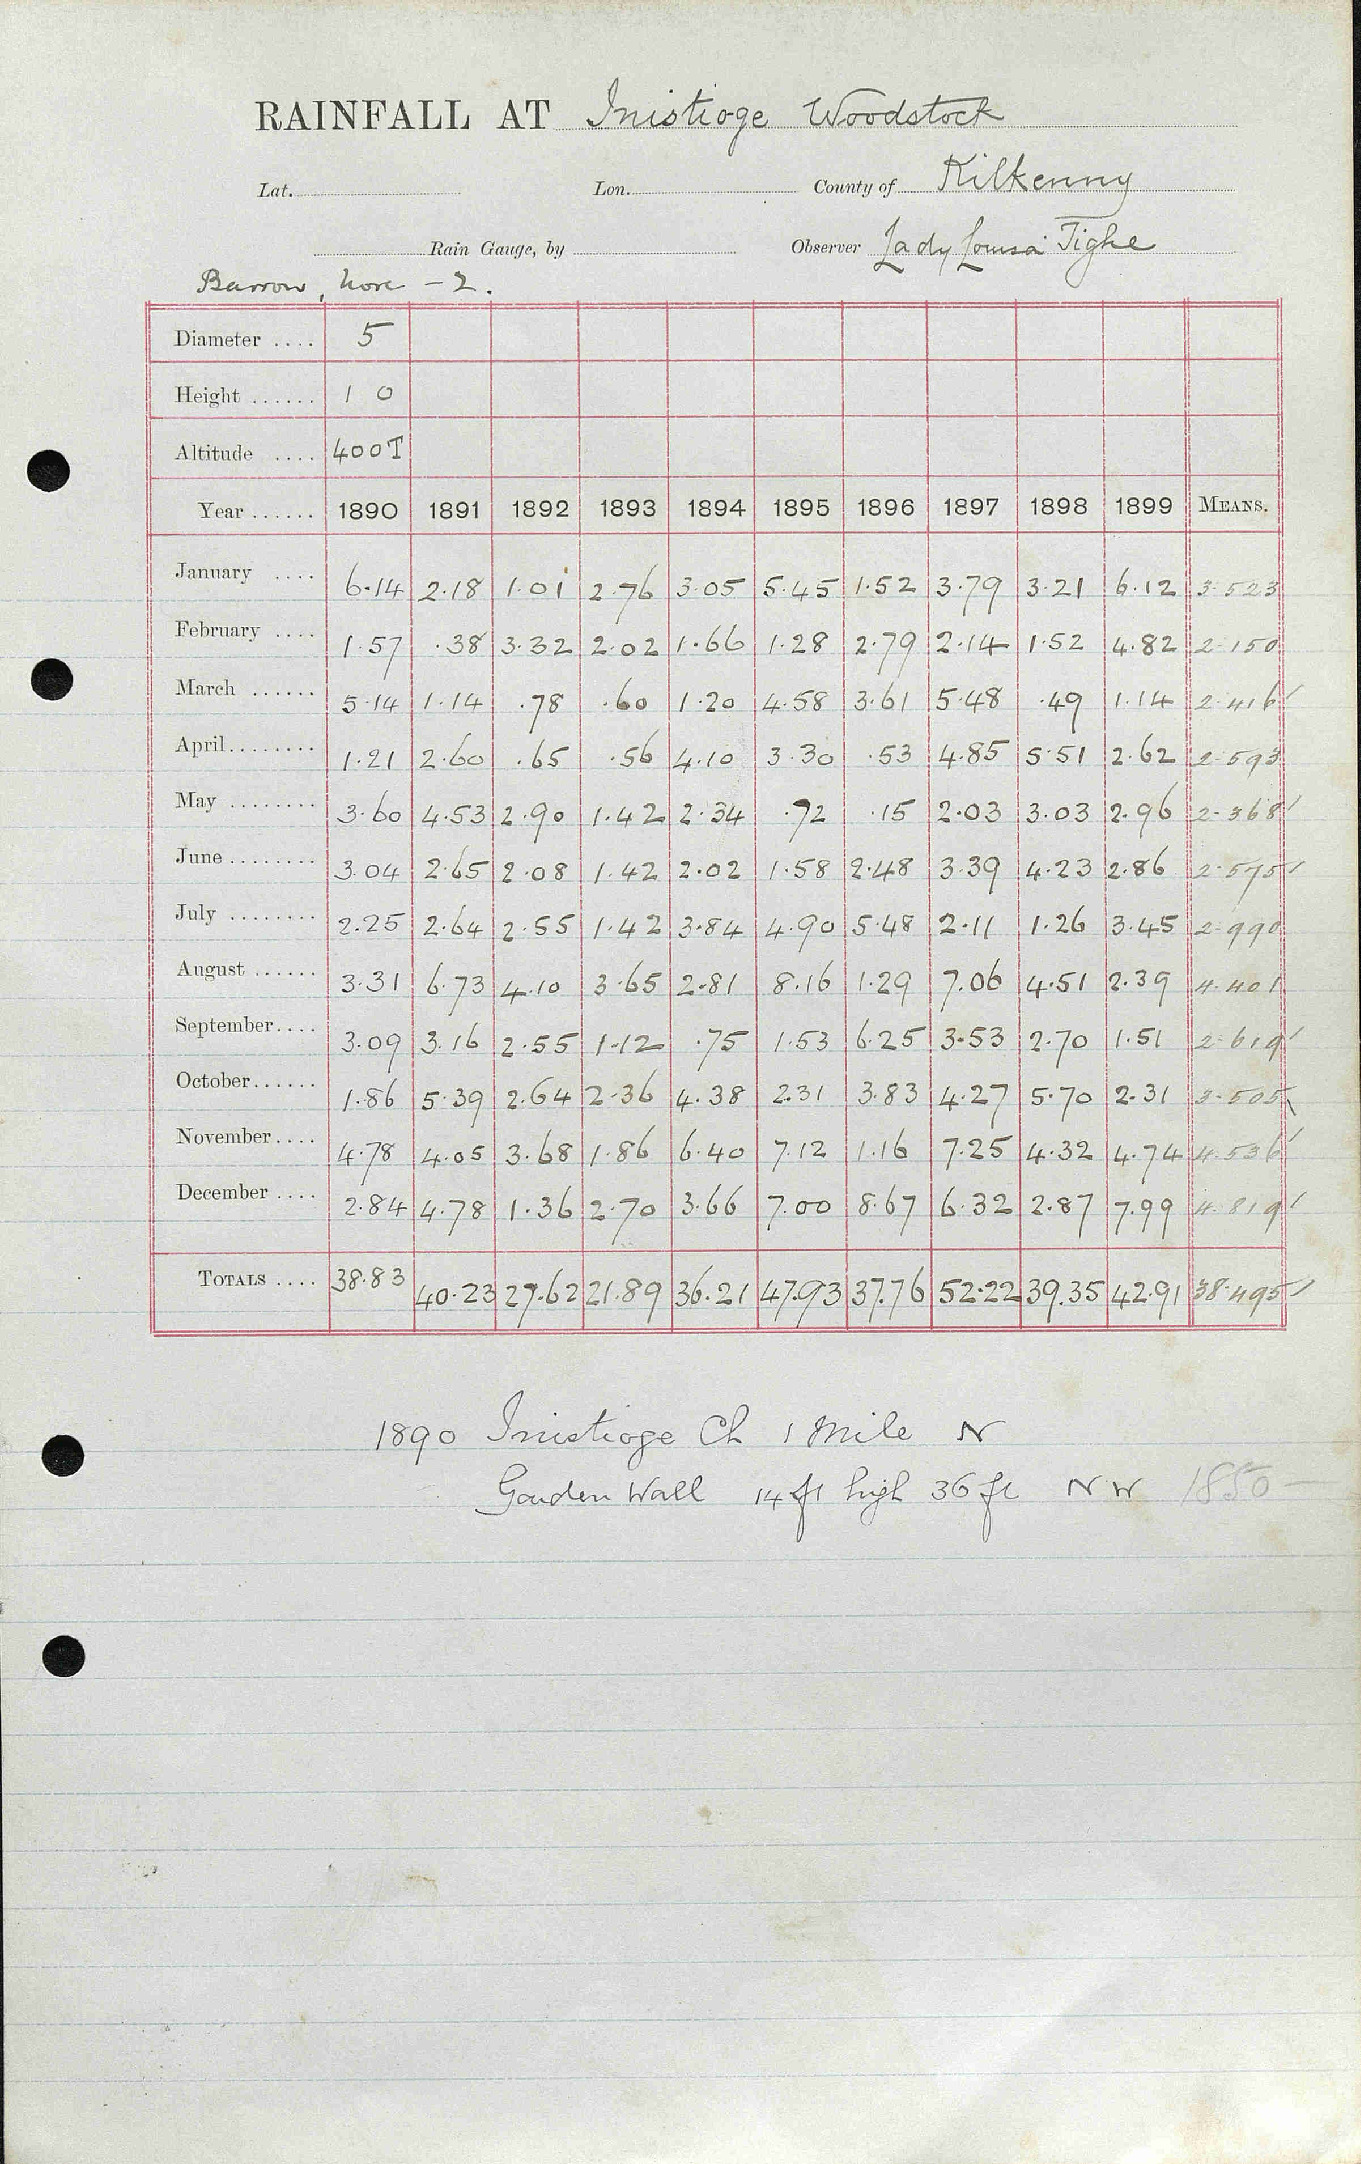 RAINFALL AT Inistioge Woodstock
Lat. Lon. County of Kilkenny
Rain Gauge, by Observer Lady Louisa Tighe
Barrow, Nore - 2.
Diameter .... 5
Height ...... 1 0
Altitude .... 400T
Year ...... 1890 1891 1892 1893 1894 1895 1896 1897 1898 1899 MEANS.
January .... 6.14 2.18 1.01 2.76 3.05 5.45 1.52 3.79 3.21 6.12 3.523
February .... 1.57 .38 3.32 2.02 1.66 1.28 2.79 2.14 1.52 4.82 2.150
March ...... 5.14 1.14 .78 .60 1.20 4.58 3.61 5.48 .49 1.14 2.416
April........ 1.21 2.60 .65 .56 4.10 3.30 .53 4.85 5.51 2.62 2.593
May ........ 3.60 4.53 2.90 1.42 2.34 .72 .15 2.03 3.03 2.96 2.368
June ........ 3.04 2.65 2.08 1.42 2.02 1.58 2.48 3.39 4.23 2.86 2.575
July ........ 2.25 2.64 2.55 1.42 3.84 4.90 5.48 2.11 1.26 3.45 2.990
August ...... 3.31 6.73 4.10 3.65 2.81 8.16 1.29 7.06 4.51 2.39 4.401
September.... 3.09 3.16 2.55 1.12 .75 1.53 6.25 3.53 2.70 1.51 2.619
October...... 1.86 5.39 2.64 2.36 4.38 2.31 3.83 4.27 5.70 2.31 3.505
November.... 4.78 4.05 3.68 1.86 6.40 7.12 1.16 7.25 4.32 4.74 4.536
December .... 2.84 4.78 1.36 2.70 3.66 7.00 8.67 6.32 2.87 7.99 4.819
TOTALS .... 38.83 40.23 27.62 21.89 36.21 47.93 37.76 52.22 39.35 42.91 38.495
1890 Inistioge Ch 1 Mile N
Garden Wall 14 ft high 36 ft NW 1850-